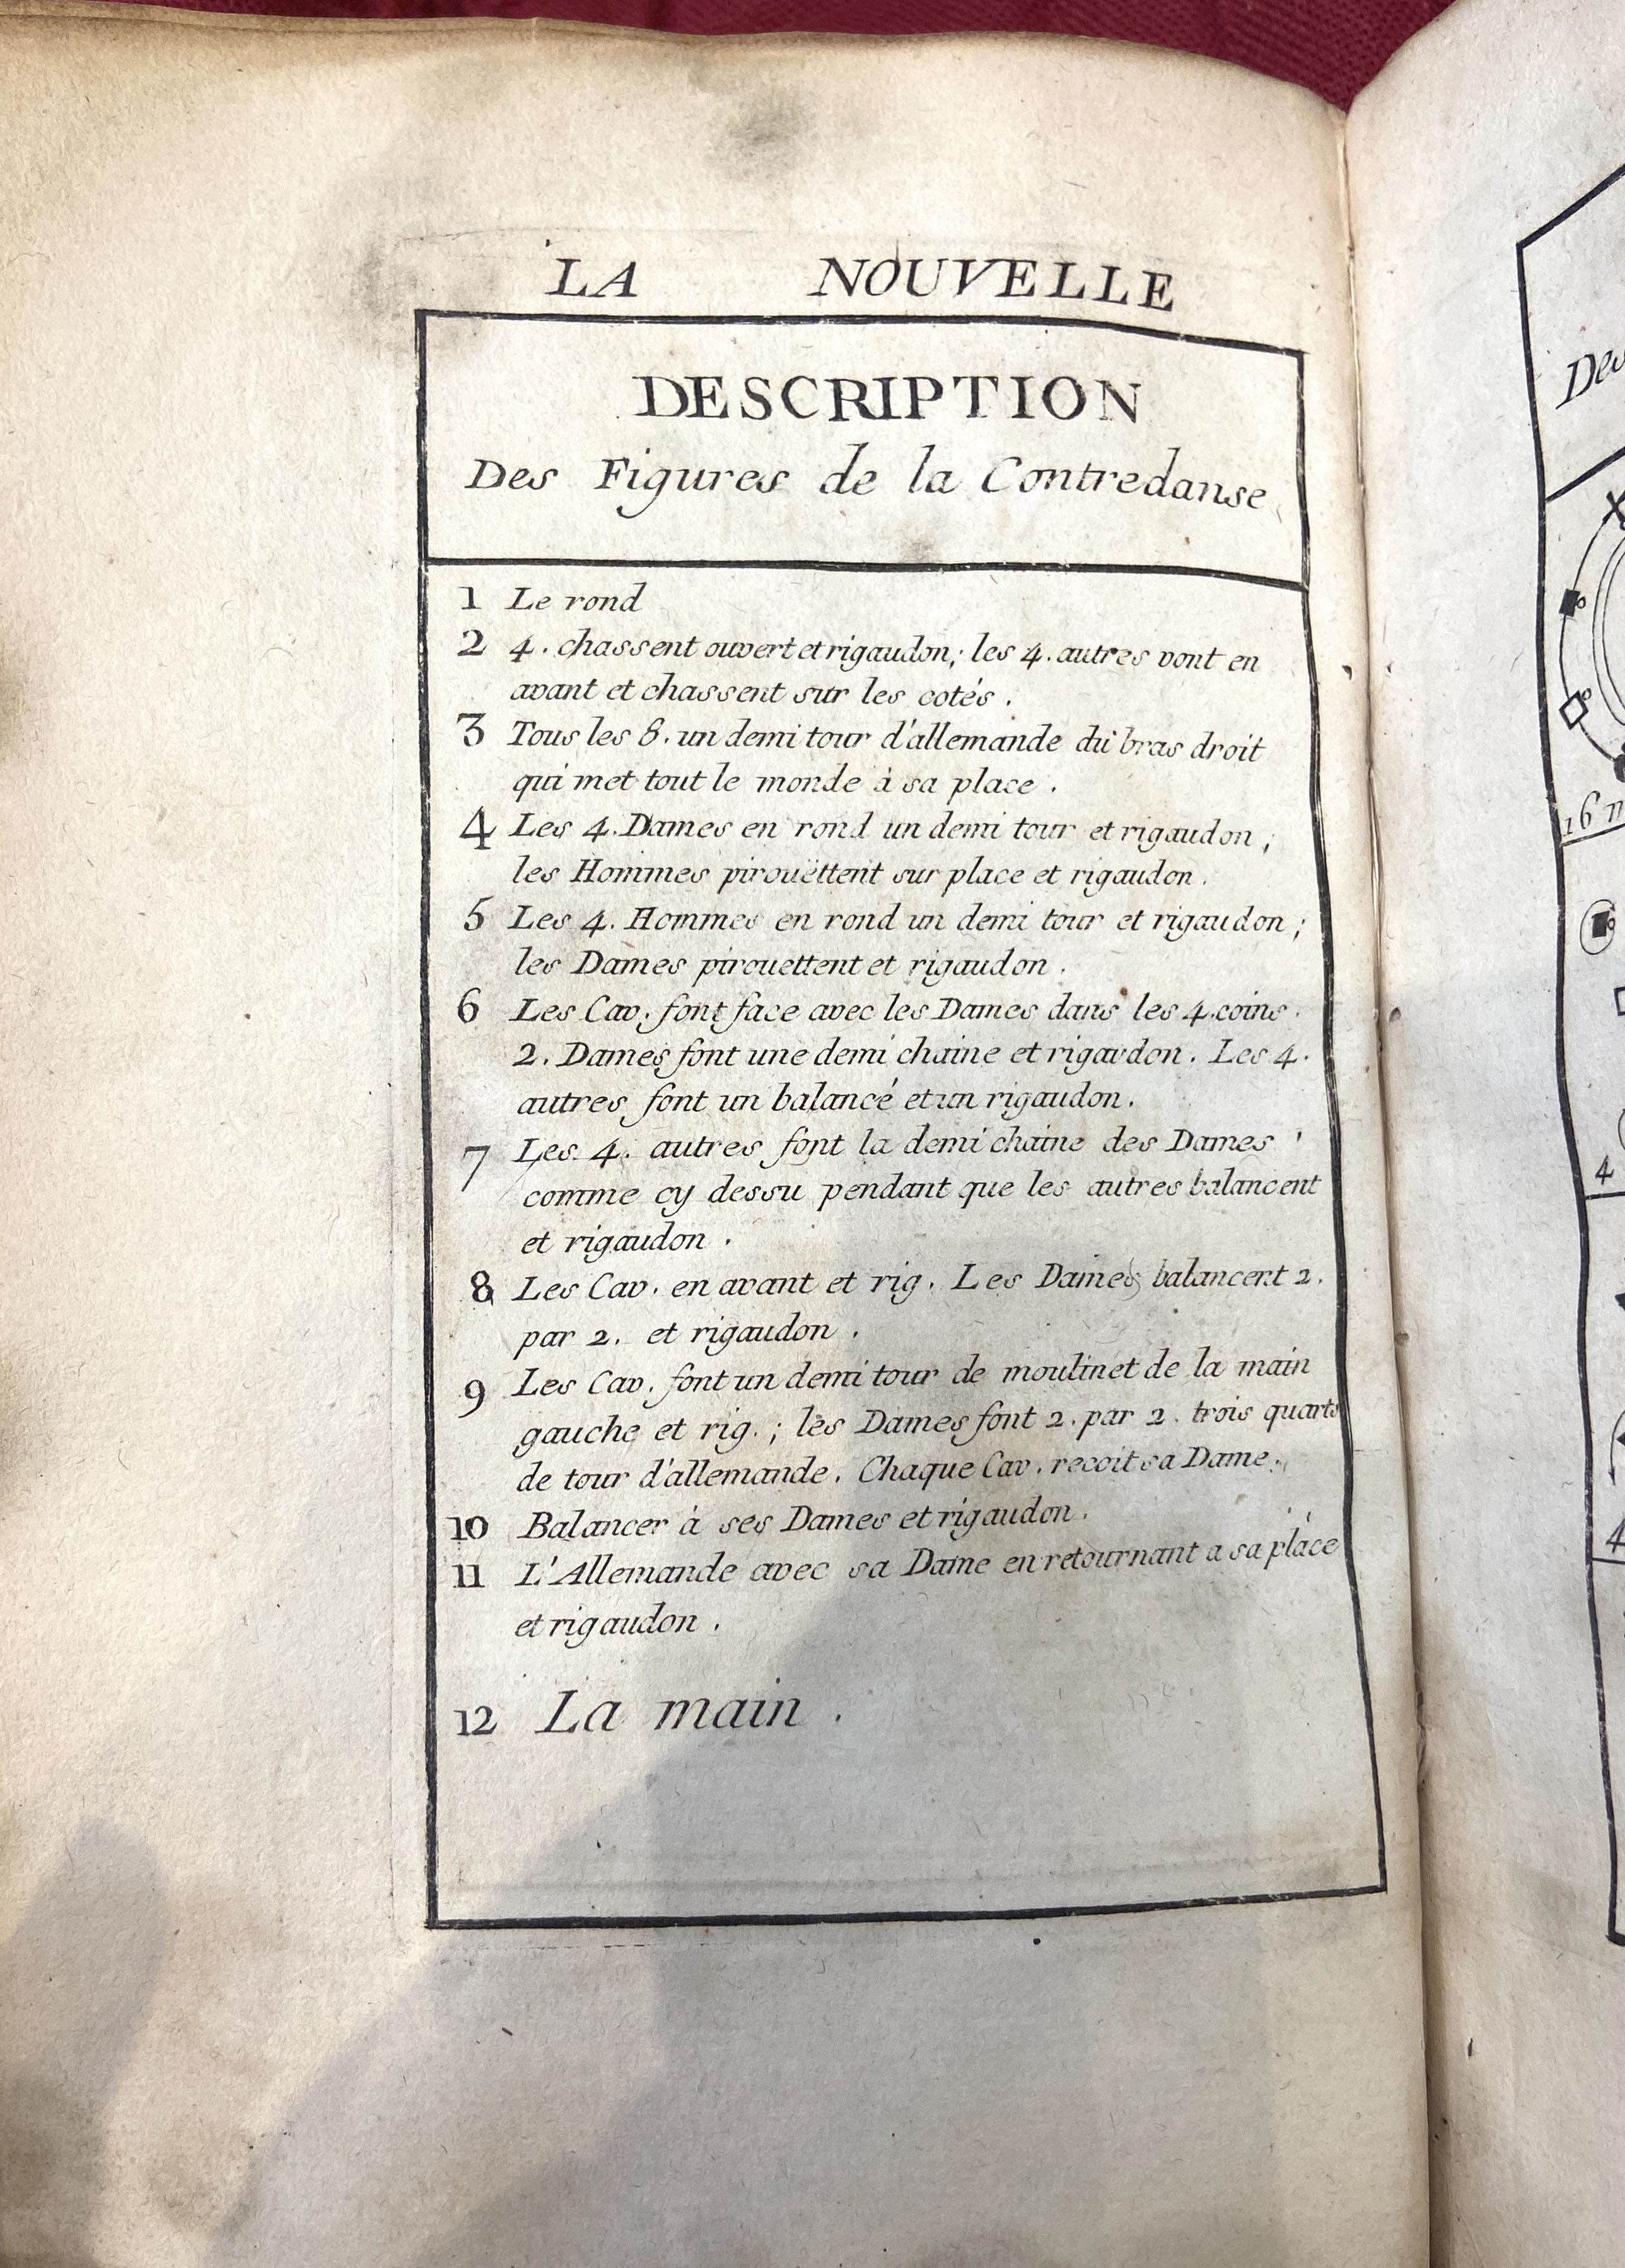 LA NOUVELLE
DESCRIPTION
Des Figures de la Contredanse
1 Le rond
2 4. chassent ouvert et rigaudon; les 4. autres vont en
avant et chassent sur les cotés.
3 Tous les 8. un demi tour d'allemande du bras droit
qui met tout le monde à sa place.
4 Les 4. Dames en rond un demi tour et rigaudon;
les Hommes pirouëttent sur place et rigaudon.
5 Les 4. Hommes en rond un demi tour et rigaudon;
les Dames pirouettent et rigaudon.
6 Les Cav. font face avec les Dames dans les 4. coins.
2. Dames font une demi chaine et rigaudon. Les 4.
autres font un balancé et un rigaudon.
7 Les 4. autres font la demi chaine des Dames
comme cy dessu pendant que les autres balancent
et rigaudon.
8 Les Cav. en avant et rig. Les Dames balancent 2.
par 2. et rigaudon.
9 Les Cav. font un demi tour de moulinet de la main
gauche et rig.; les Dames font 2. par 2. trois quarts
de tour d'allemande. Chaque Cav. recoit sa Dame.
10 Balancer à ses Dames et rigaudon.
11 L'Allemande avec sa Dame en retournant a sa place
et rigaudon.
12 La main.
Des
16
4
4